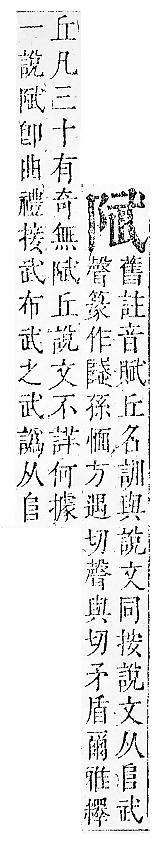 陚
舊註音賦丘名訓與說文同按說文从𨸏武
聲篆作孫愐方遇切聲與切矛盾爾雅釋
丘凡三十有奇無陚丘說文不詳何據
一說陚卽曲禮接武布武之武譌从𨸏